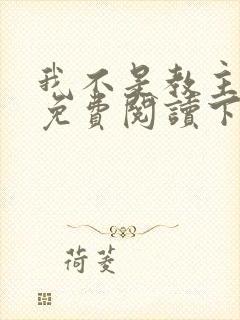 我不是教主
免費閱讀下
荷菱